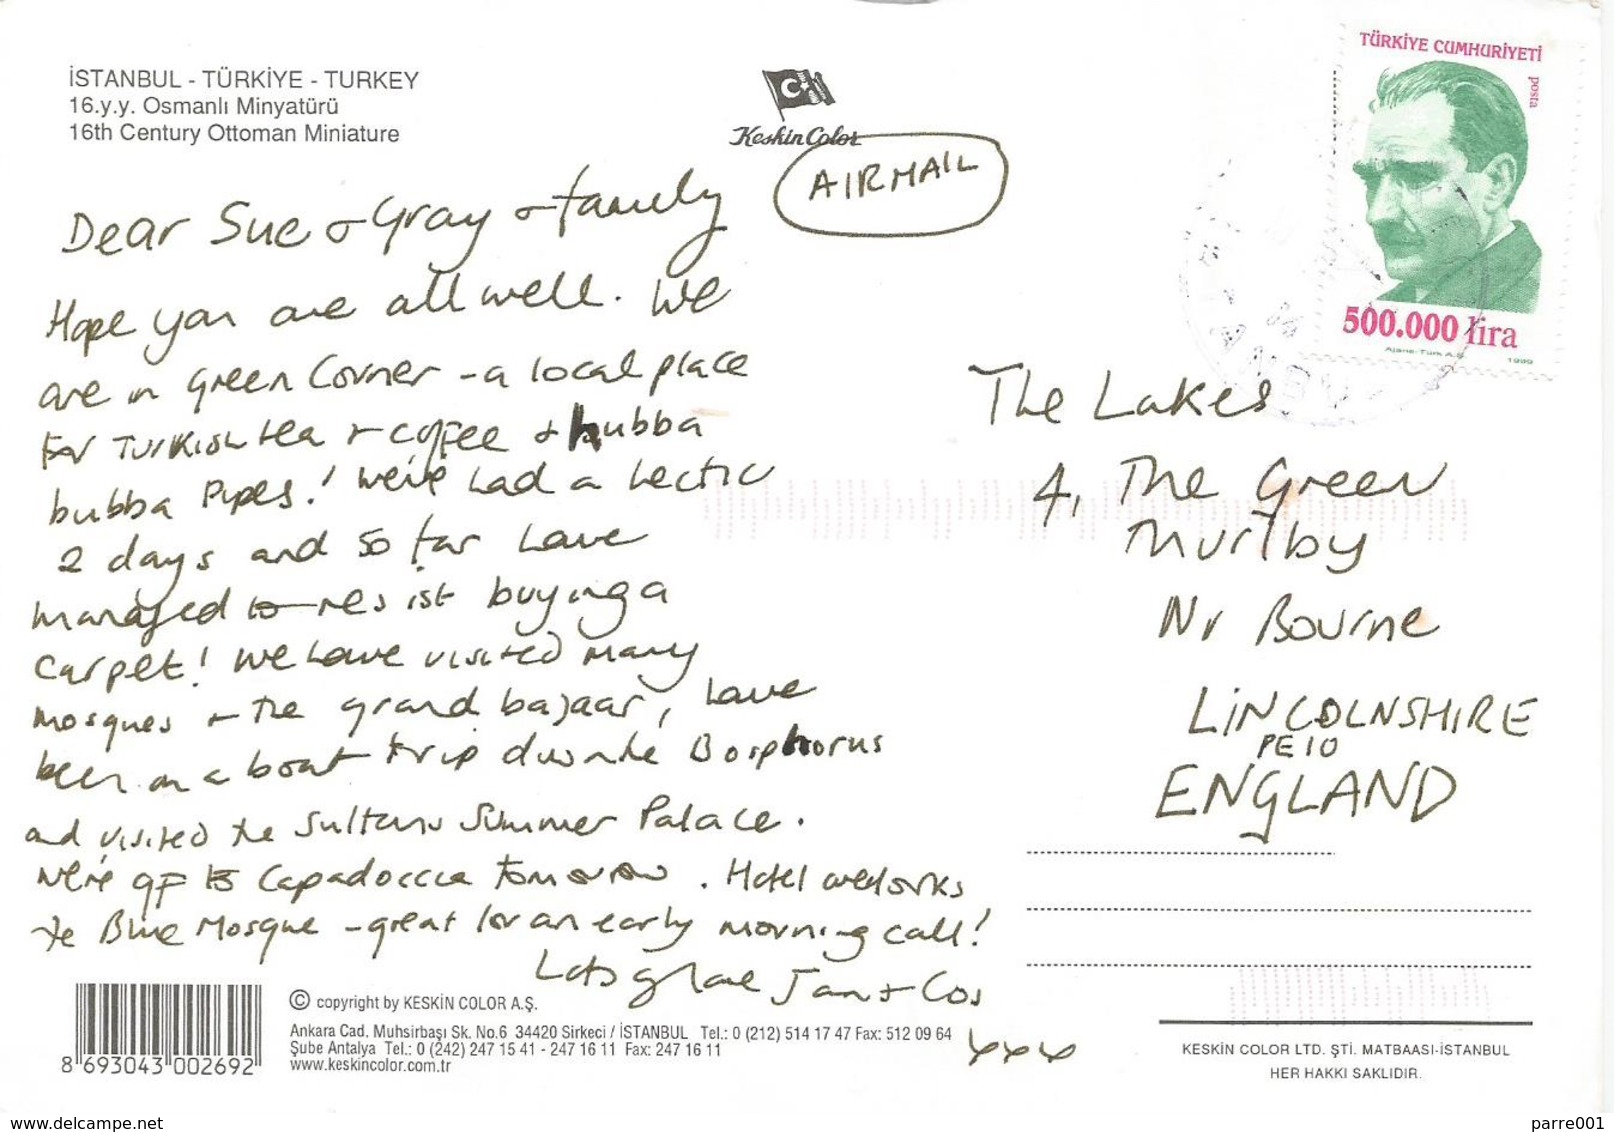 İSTANBUL - TÜRKİYE - TURKEY
16.y.y. Osmanlı Minyatürü
16th Century Ottoman Miniature
Keskin Color
AIRMAIL
TÜRKİYE CUMHURİYETİ
posta
500.000 lira
Ajans-Türk A.Ş. 1999
Dear Sue & Gray & family
Hope you are all well. We
are in Green Corner - a local place
for Turkish tea & coffee & hubba
bubba Pipes! We've had a hectic
2 days and so far have
managed to resist buying a
carpet! We have visited many
mosques & the grand bajaar, have
been on a boat trip down the Bosphorus
and visited the Sultans Summer Palace.
We're off to Capadoccia tomorrow. Hotel overlooks
the Blue Mosque - great for an early morning call!
Lots of love Jan & Cos
xxx
The Lakes
4, The Green
Thurlby
Nr Bourne
LINCOLNSHIRE
PE10
ENGLAND
8 693043 002692
© copyright by KESKİN COLOR A.Ş.
Ankara Cad. Muhsirbaşı Sk. No.6 34420 Sirkeci / İSTANBUL Tel.: 0 (212) 514 17 47 Fax: 512 09 64
Şube Antalya Tel.: 0 (242) 247 15 41 - 247 16 11 Fax: 247 16 11
www.keskincolor.com.tr
KESKİN COLOR LTD. ŞTİ. MATBAASI-İSTANBUL
HER HAKKI SAKLIDIR.
www.delcampe.net
parre001